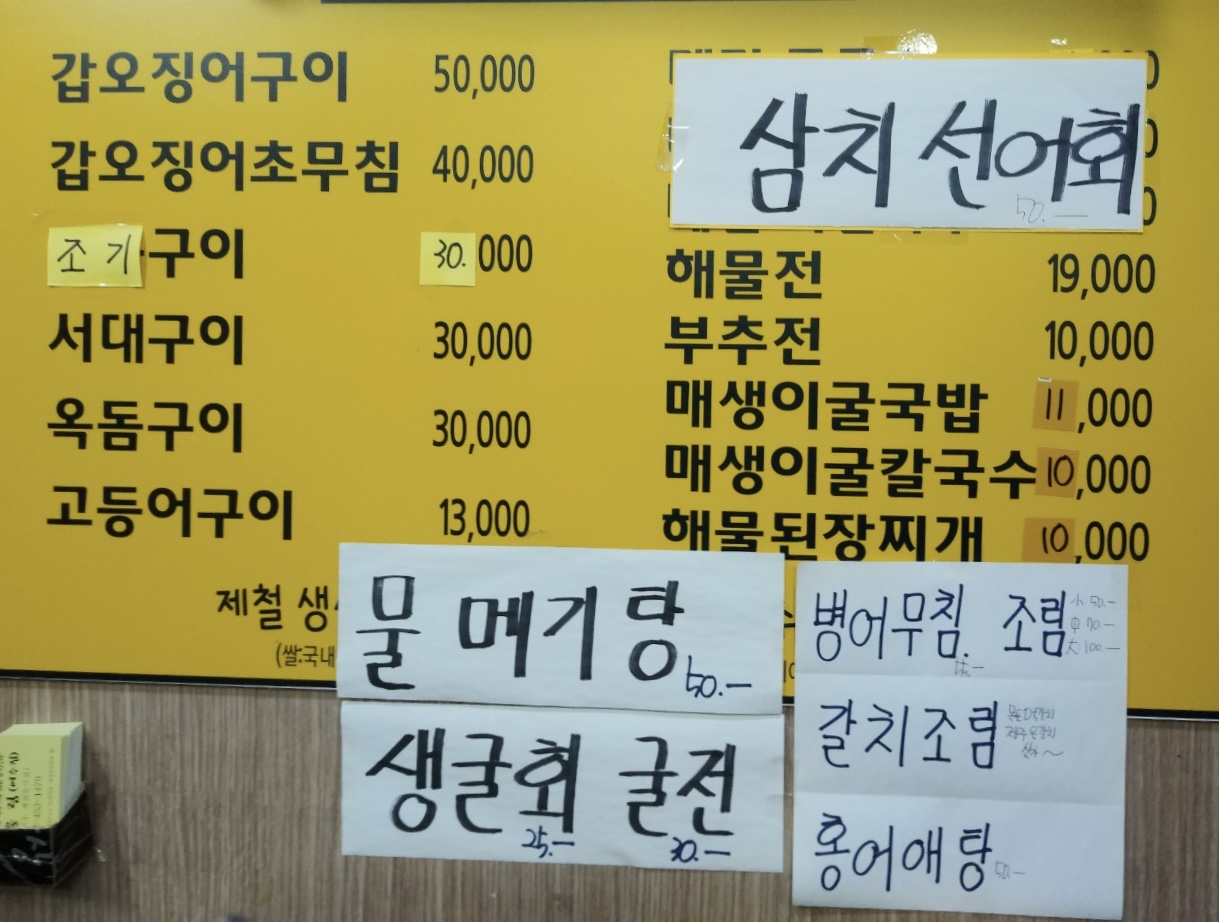 갑오징어구이 50,000
갑오징어초무침 40,000
조기구이 30.000
서대구이 30,000
옥돔구이 30,000
고등어구이 13,000
제철 생
(쌀:국내
삼치 선어회
50.—
해물전 19,000
부추전 10,000
매생이굴국밥 11,000
매생이굴칼국수 10,000
해물된장찌개 10,000
물 메기탕 50.—
생굴회 굴전
25.— 30.—
병어무침. 조림
小 50.—
中 70.—
大 100.—
갈치조림
홍어애탕 50.—